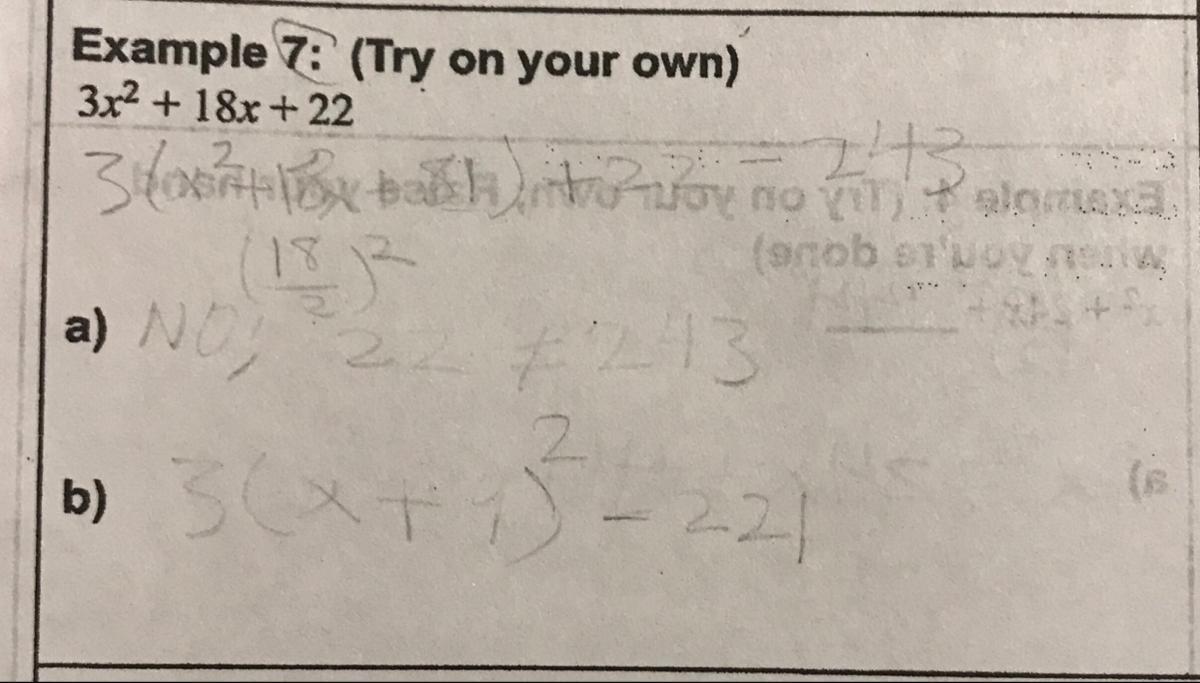 Example 7: (Try on your own)
3x² + 18x + 22
3(x² + 18x + 81) + 22 - 243
(18/2)²
a) NO, 22 ≠ 243
b) 3(x + 9)² - 221